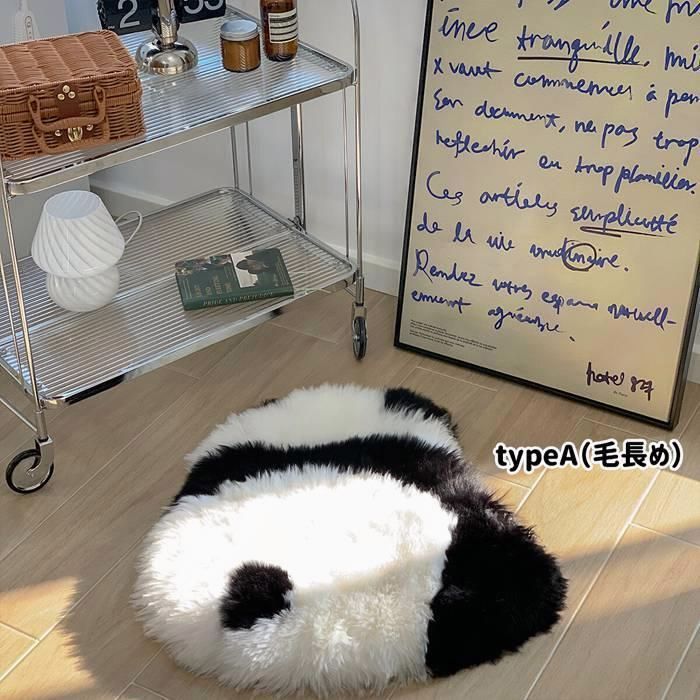 2 53
une p
ince tranquille, mi
x vaut commencer à pen
Son document, ne pas trop
reflechir ou trop planifier.
Ces articles simplicité
de la vie
Rendez votres espace naturell-
ement agréable.
hotel 827
PRIDE AND PREJUDICE
typeA(毛長め)